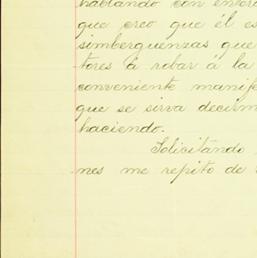 hablando con
que creo que él es
simberguenzas que
tores á robar á la
conveniente manife
que se sirva decirm
haciendo.
Solicitándo
nes me repito de